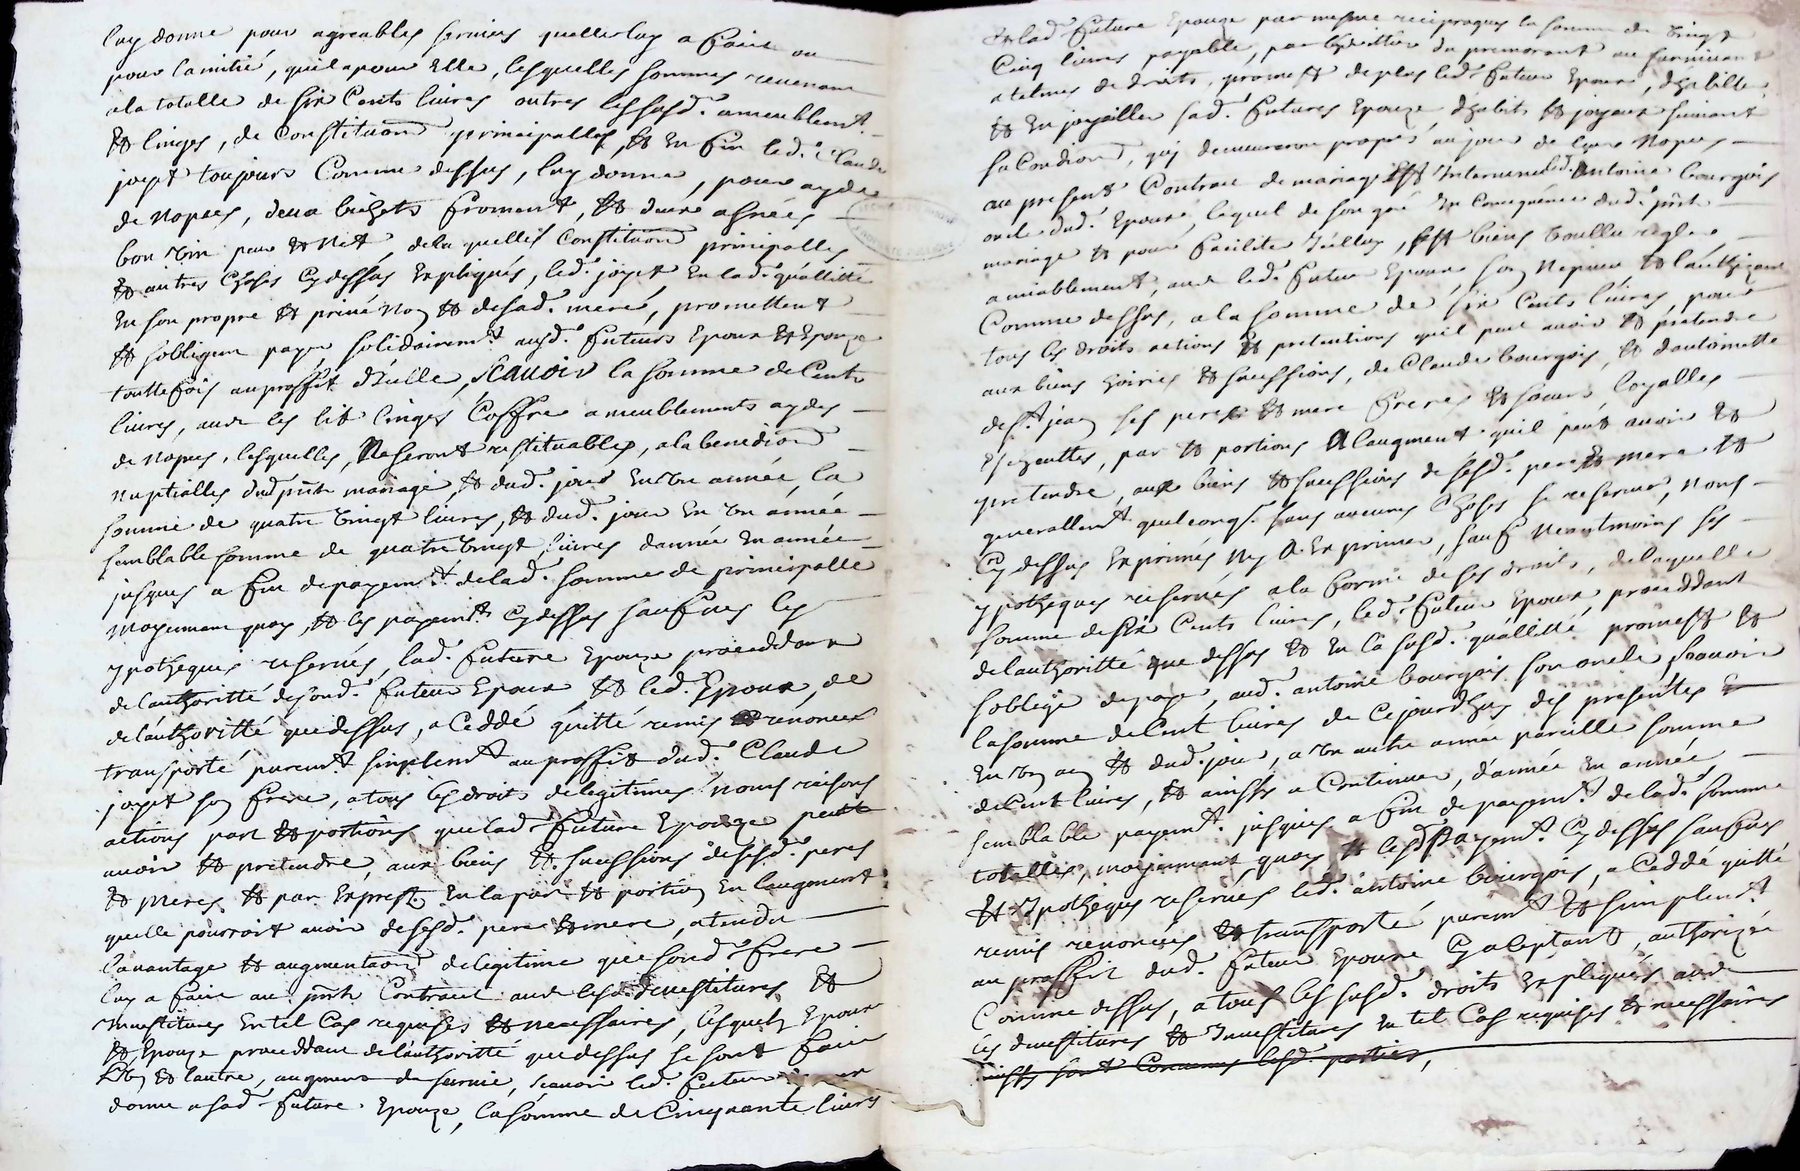 luy donne pour agreables services quelle luy a faict ou
pour lamitié, quil a pour Elle, lesquelles sommes revenant
a la totalle de six Cents livres outres les susd. ameublemt.
et linges, de Constituaõn principalle, et En fin led. Claude
joyet toujours Comme dessus, luy donne, pour aydes
de nopces, deux bichets froment, et deux asnées
bon vin pur et net de la quelle Constituaõn principalle
et autres choses Cy dessus Expliqués, led. joyet En lad. quallitté
En son propre et privé nom et de sad. mere, promettent
et sobligent payer solidairemt. ausd. futeurs Epoux et Epouze
touttefois au proffit d'Icelle, sçavoir la somme de Cent
livres, avec les lit linges Coffre ameublements aydes
de nopces, lesquelles, ne seront restituables, a la benediõn
nuptialles dud. pnt mariage, et dud. jour En un année, la
somme de quatre vingt livres, et dud. jour En un année
semblable somme de quatre vingt livres dannée En année
jusques a fin de payemt. de lad. somme de principalle
moyennant quoy, et les payemts. Cy dessus sauf ues les
ypotheques reservés, lad. future Epouze proceddant
de lauthoritté de sond. futeur Epoux et led. Epoux, de
de lauthoritté que dessus, a Ceddé quitté remis renoncé
transporté puremt. simplemt. au proffit dud. Claude
joyet son frere, a tous les droits de legitimes noms raisons
actions part et portions que lad. future Epouze peut
avoir et pretendre, aux biens et successions de sesd. peres
et meres et par Expres. En la part et portion En laugment
quelle pourroit avoir de sesd. pere et mere, atendu
lavantage et augmentaõn de legitime que sond. frere
luy a faict au pnt Contract avec les d. devestitures et
Investitures En tel Cas requises et necessaires, lesquels Epoux
et Epouze proceddant de lauthoritté que dessus se sont faict
lun et lautre, augment de survie, scavoir led. futeur Epoux
donne a sad. future Epouze, la somme de Cinquante livres
Et lad. future Epouze par mesme reciproques la somme de vingt
Cinq livres payable, par du premorant au survivant
a telmes de droits, promet de plus led. futeur Epoux, dhabiller
et En joyailler sad. futures Epouze dhabits et joyaux suivant
sa Condiõn, quy demeureron propres au jour de leurs nopces
au present Contract de mariage Est Intervenu led. Antoine bourgois
oncle dud. Epoux, lequel de son gré En Consequence dud. pnt
mariage et pour facilite Icelluy, Est bien voullu regler
amiablement, avec led. futeur Epoux son nepveu et lauthorizant
Comme dessus, a la somme de six Cents livres, pour
tous les droits actions et pretentions quil peut avoir et pretendre
aux biens hoiries et successions, de Claude bourgois, et dantoinette
de St. jean ses pere et mere freres et sœurs, loyalles
Eschenttes, par et portions a laugment quil peut avoir et
pretendre, aux biens et successions de sesd. pere et mere et
generallemt. quelconqs. sans aucunes choses se reserver, nons
Cy dessus Exprimés ny a Exprimer, sauf neantmoins ses
ypotheques reservés a la forme de ses droits, de laquelle
somme de six Cents livres, led. futeur Epoux, proceddant
de lauthoritté que dessus et En la susd. quallitté, promet et
soblige de payer, aud. antoine bourgois son oncle sçavoir
la somme de Cent livres de Cejourdhuy des presentes
En un an et dud. jour, a un autre année pareille somme
de Cent livres, et ainssy a Continuer, d'année En année,
semblable payemt. jusques a fin de payemt. de lad. somme
totalle, moyennant quoy et les d. payemt. Cy dessus sauf ues
et Ipotheques reservés led. antoine bourgois, a Ceddé quitté
remis renoncés et transporté puremt. et simplemt.
au proffit dud. futeur Epoux Cy aceptant, authorizée
Comme dessus, a tous les susd. droits Expliqués avec
les devestitures et Investitures En tel Cas requises et necessaires
ainssy sont Convenus lesd. parties,